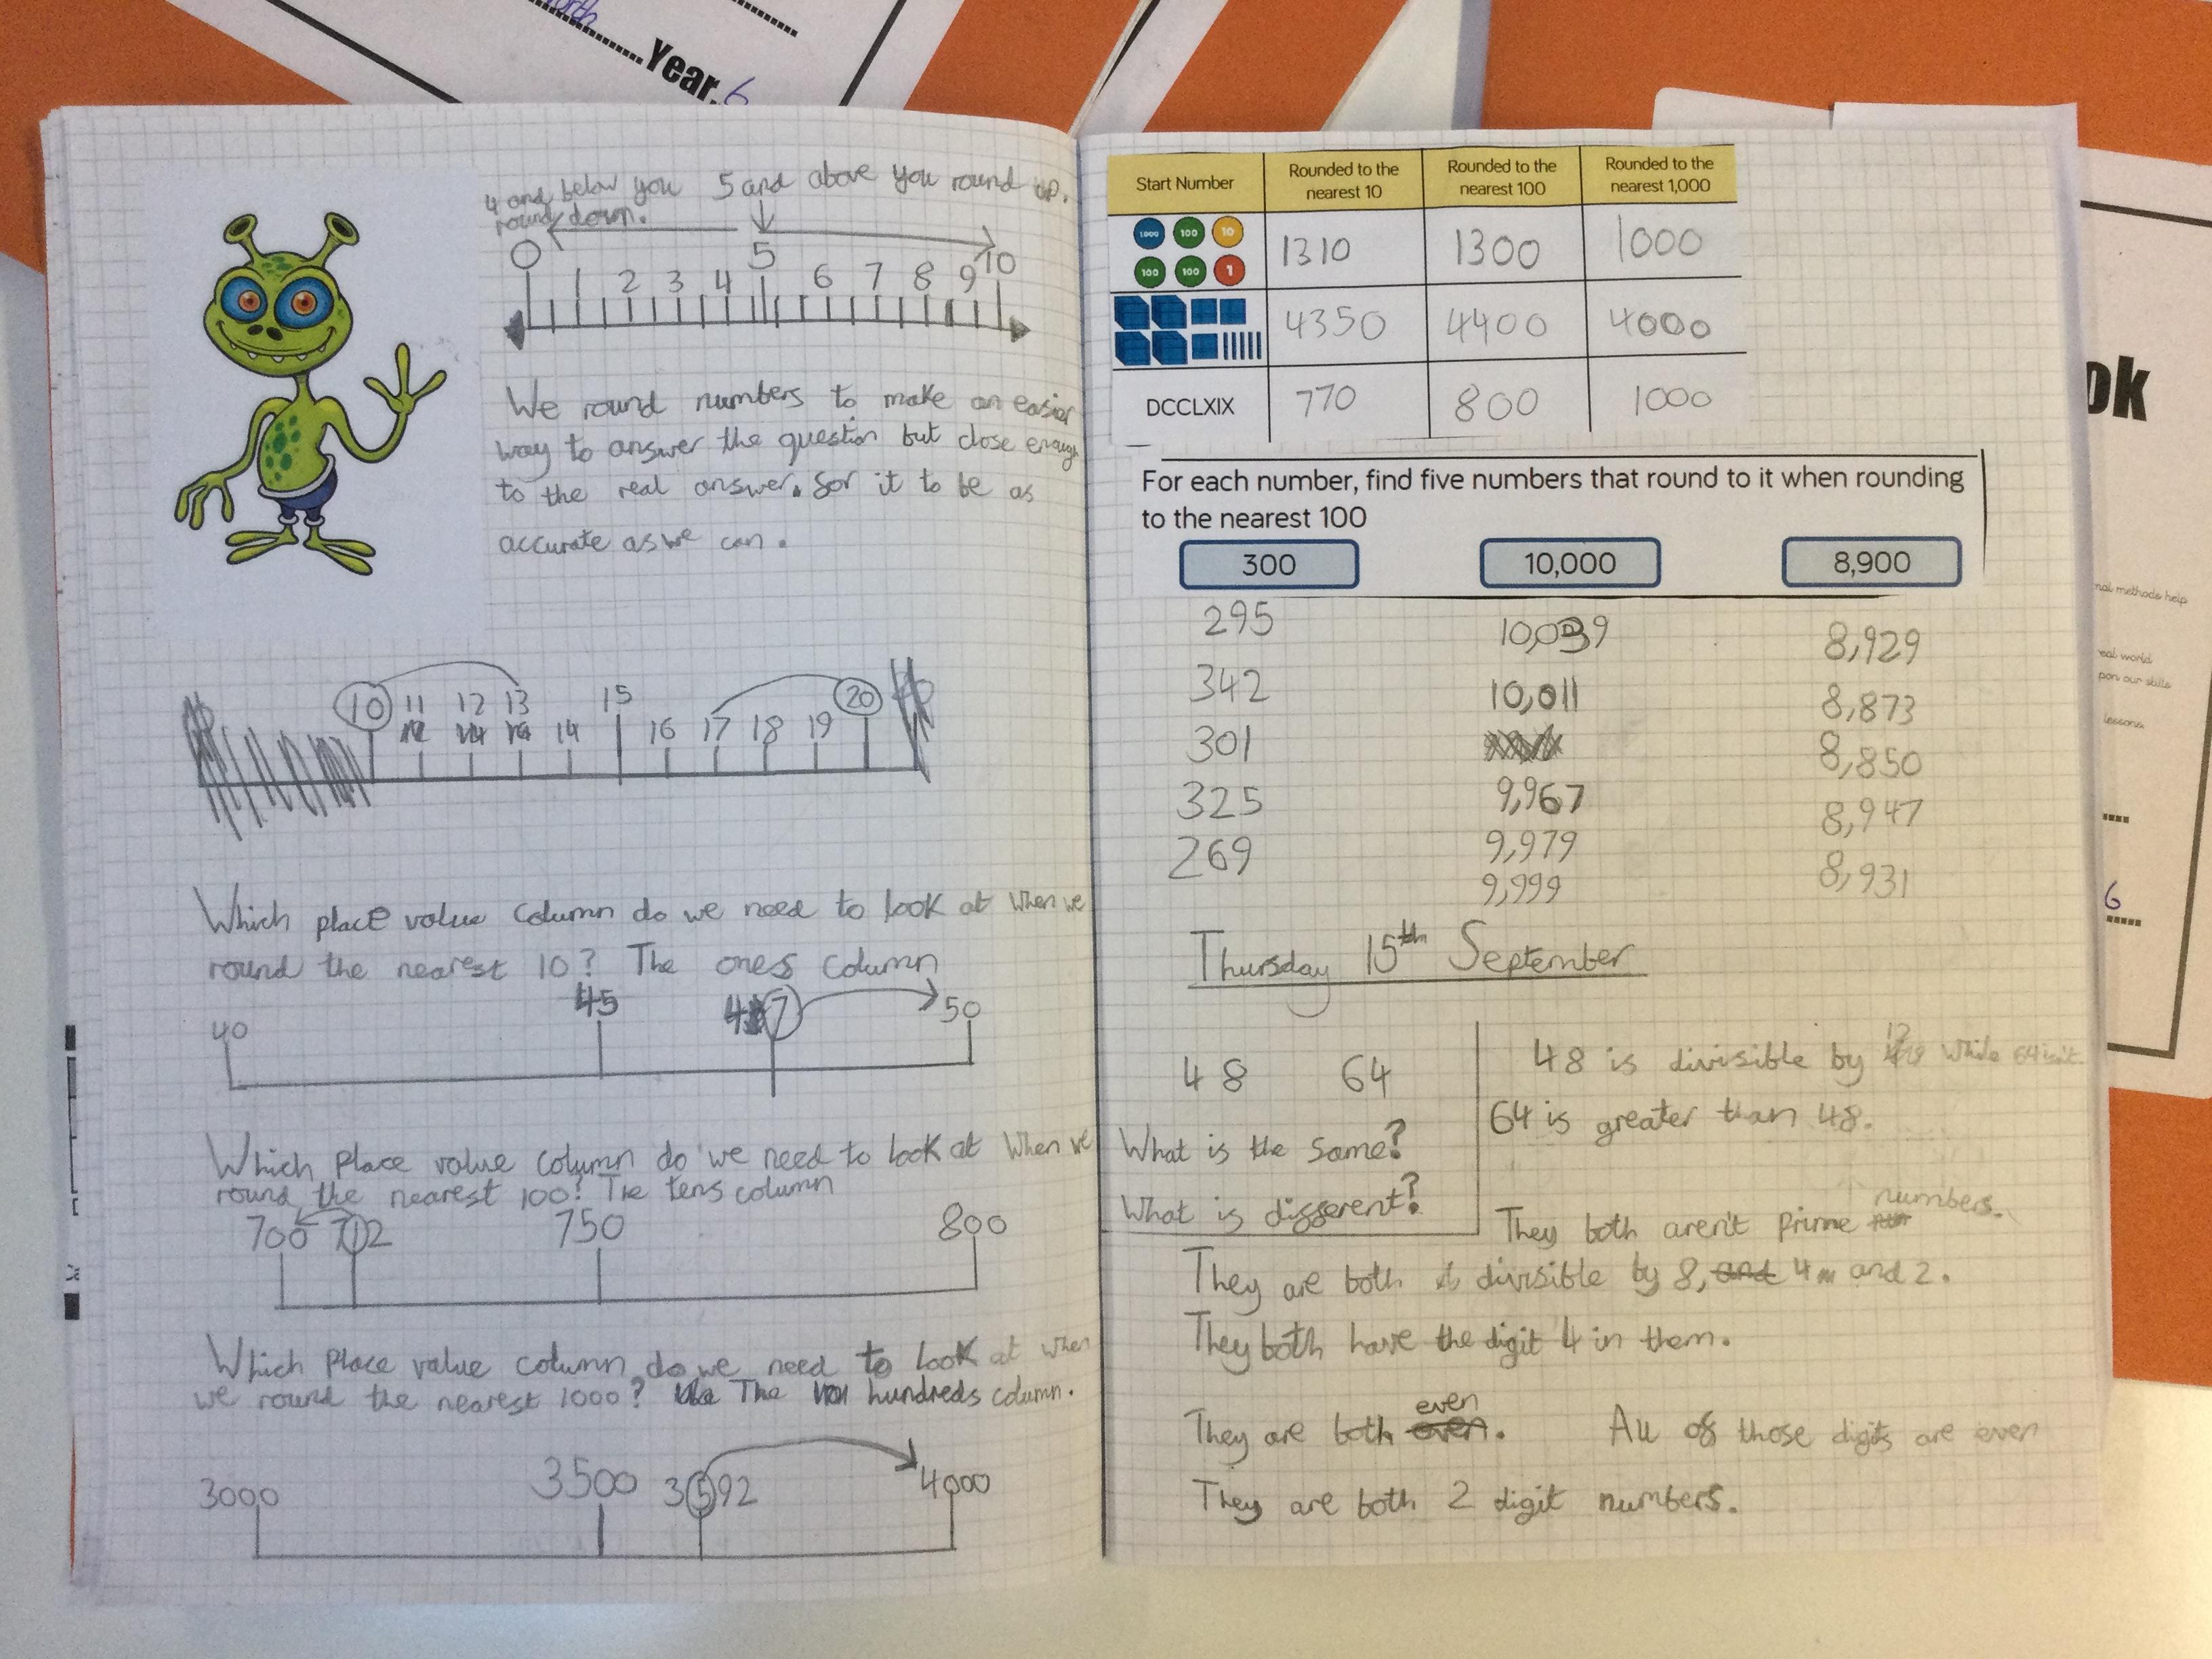 Year 6
4 and below you
round down.
5 and above you round up.
0 1 2 3 4 5 6 7 8 9 10
We round numbers to make an easier
way to answer the question but close enough
to the real answer. for it to be as
accurate as we can.
10 11 12 13 14 15 16 17 18 19 20
Which place value column do we need to look at when we
round the nearest 10? The ones column
40 45 47 50
Which place value column do we need to look at when we
round the nearest 100? The tens column
700 712 750 800
Which place value column do we need to look at when
we round the nearest 1000? The hundreds column.
3000 3500 3592 4000
Start Number
Rounded to the
nearest 10
Rounded to the
nearest 100
Rounded to the
nearest 1,000
1,000 100 10
100 100 1
1310 1300 1000
4350 4400 4000
DCCLXIX 770 800 1000
For each number, find five numbers that round to it when rounding
to the nearest 100
300 10,000 8,900
295
342
301
325
269
10,039
10,011
9,967
9,979
9,999
8,929
8,873
8,850
8,947
8,931
Thursday 15th September
48 64
What is the same?
What is different?
48 is divisible by 12 while 64 isn't
64 is greater than 48.
They both aren't prime numbers.
They are both divisible by 8, and 4 and 2.
They both have the digit 4 in them.
They are both even.
All of those digits are even
They are both 2 digit numbers.
ok
nal methods help
real world
pon our skills
lessons.
6